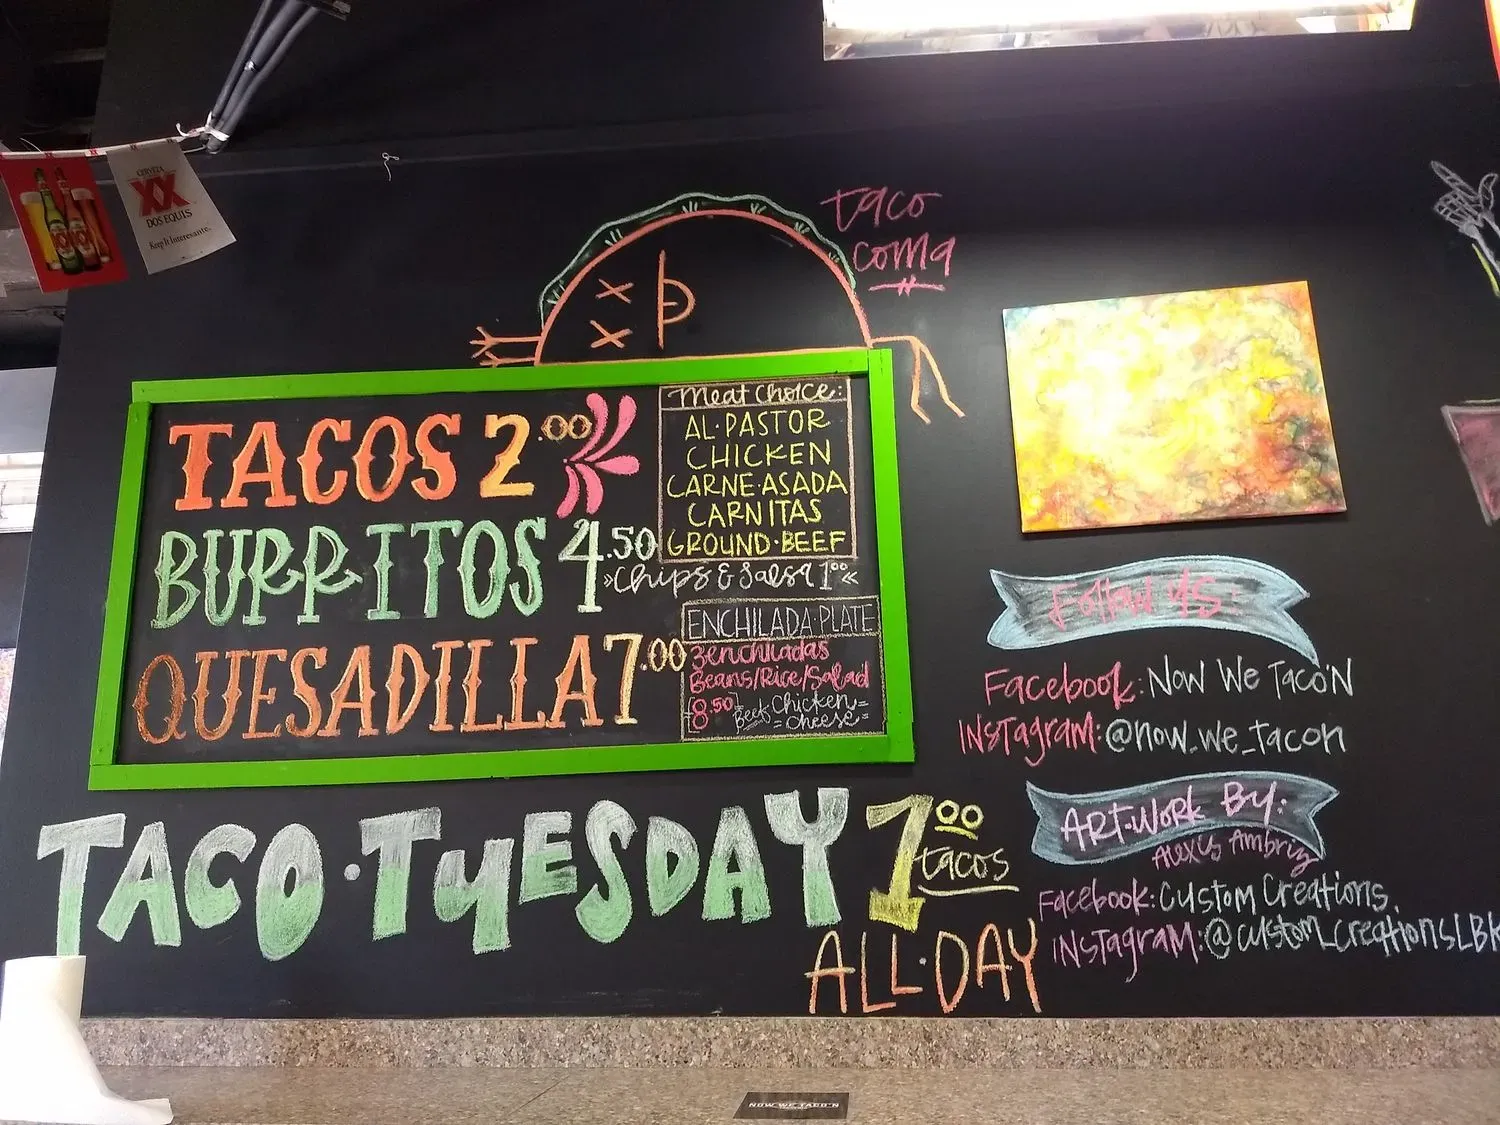 CERVEZA
XX
DOS EQUIS
Keep It Interesante.
taco
coma
TACOS 2.00
BURRITOS 4.50
QUESADILLA 7.00
Meat Choice:
AL·PASTOR
CHICKEN
CARNE·ASADA
CARNITAS
GROUND·BEEF
»Chips & Salsa 1⁰⁰«
ENCHILADA·PLATE
3 enchiladas
Beans/Rice/Salad
[8.50] Beef Chicken
cheese
TACO·TUESDAY 1⁰⁰
tacos
ALL·DAY
Follow us:
Facebook: Now We Taco'N
Instagram: @now_we_tacon
Art·Work By:
Alexis Ambriz
Facebook: Custom Creations.
Instagram: @custom_creationsLBK
NOW WE TACO'N